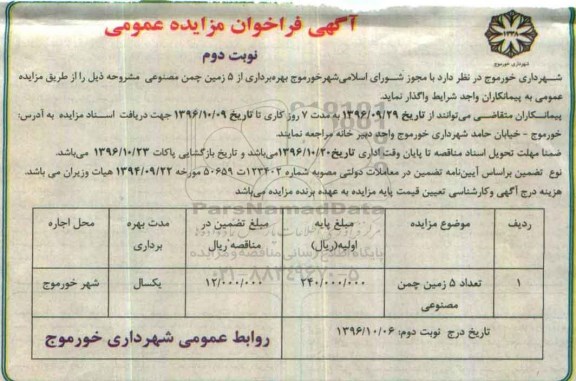 آگهی فراخوان مزایده عمومی
نوبت دوم
۱۳۳۸
شهرداری خورموج
شهرداری خورموج در نظر دارد با مجوز شورای اسلامی شهرخورموج بهره‌برداری از ۵ زمین چمن مصنوعی مشروحه ذیل را از طریق مزایده
عمومی به پیمانکاران واجد شرایط واگذار نماید.
پیمانکاران متقاضی می‌توانند از تاریخ ۱۳۹۶/۰۹/۲۹ به مدت ۷ روز کاری تا تاریخ ۱۳۹۶/۱۰/۰۹ جهت دریافت اسناد مزایده به آدرس:
خورموج - خیابان حامد شهرداری خورموج واحد دبیر خانه مراجعه نمایند.
ضمنا مهلت تحویل اسناد مناقصه تا پایان وقت اداری تاریخ ۱۳۹۶/۱۰/۲۰ می‌باشد و تاریخ بازگشایی پاکات ۱۳۹۶/۱۰/۲۳ می‌باشد.
نوع تضمین براساس آیین‌نامه تضمین در معاملات دولتی مصوبه شماره ۱۲۳۴۰۲/ت ۵۰۶۵۹ مورخه ۱۳۹۴/۰۹/۲۲ هیات وزیران می باشد.
هزینه درج آگهی وکارشناسی تعیین قیمت پایه مزایده به عهده برنده مزایده می‌باشد
ParsNamadData
پایگاه اطلاع رسانی مناقصه و مزایده
۰۲۱-۸۸۳۴۹۶۷۰-۵
ردیف موضوع مزایده مبلغ پایه اولیه(ریال) مبلغ تضمین در مناقصه ریال مدت بهره برداری محل اجاره
۱ تعداد ۵ زمین چمن مصنوعی ۲۴۰/۰۰۰/۰۰۰ ۱۲/۰۰۰/۰۰۰ یکسال شهر خورموج
تاریخ درج نوبت دوم: ۱۳۹۶/۱۰/۰۶
روابط عمومی شهرداری خورموج